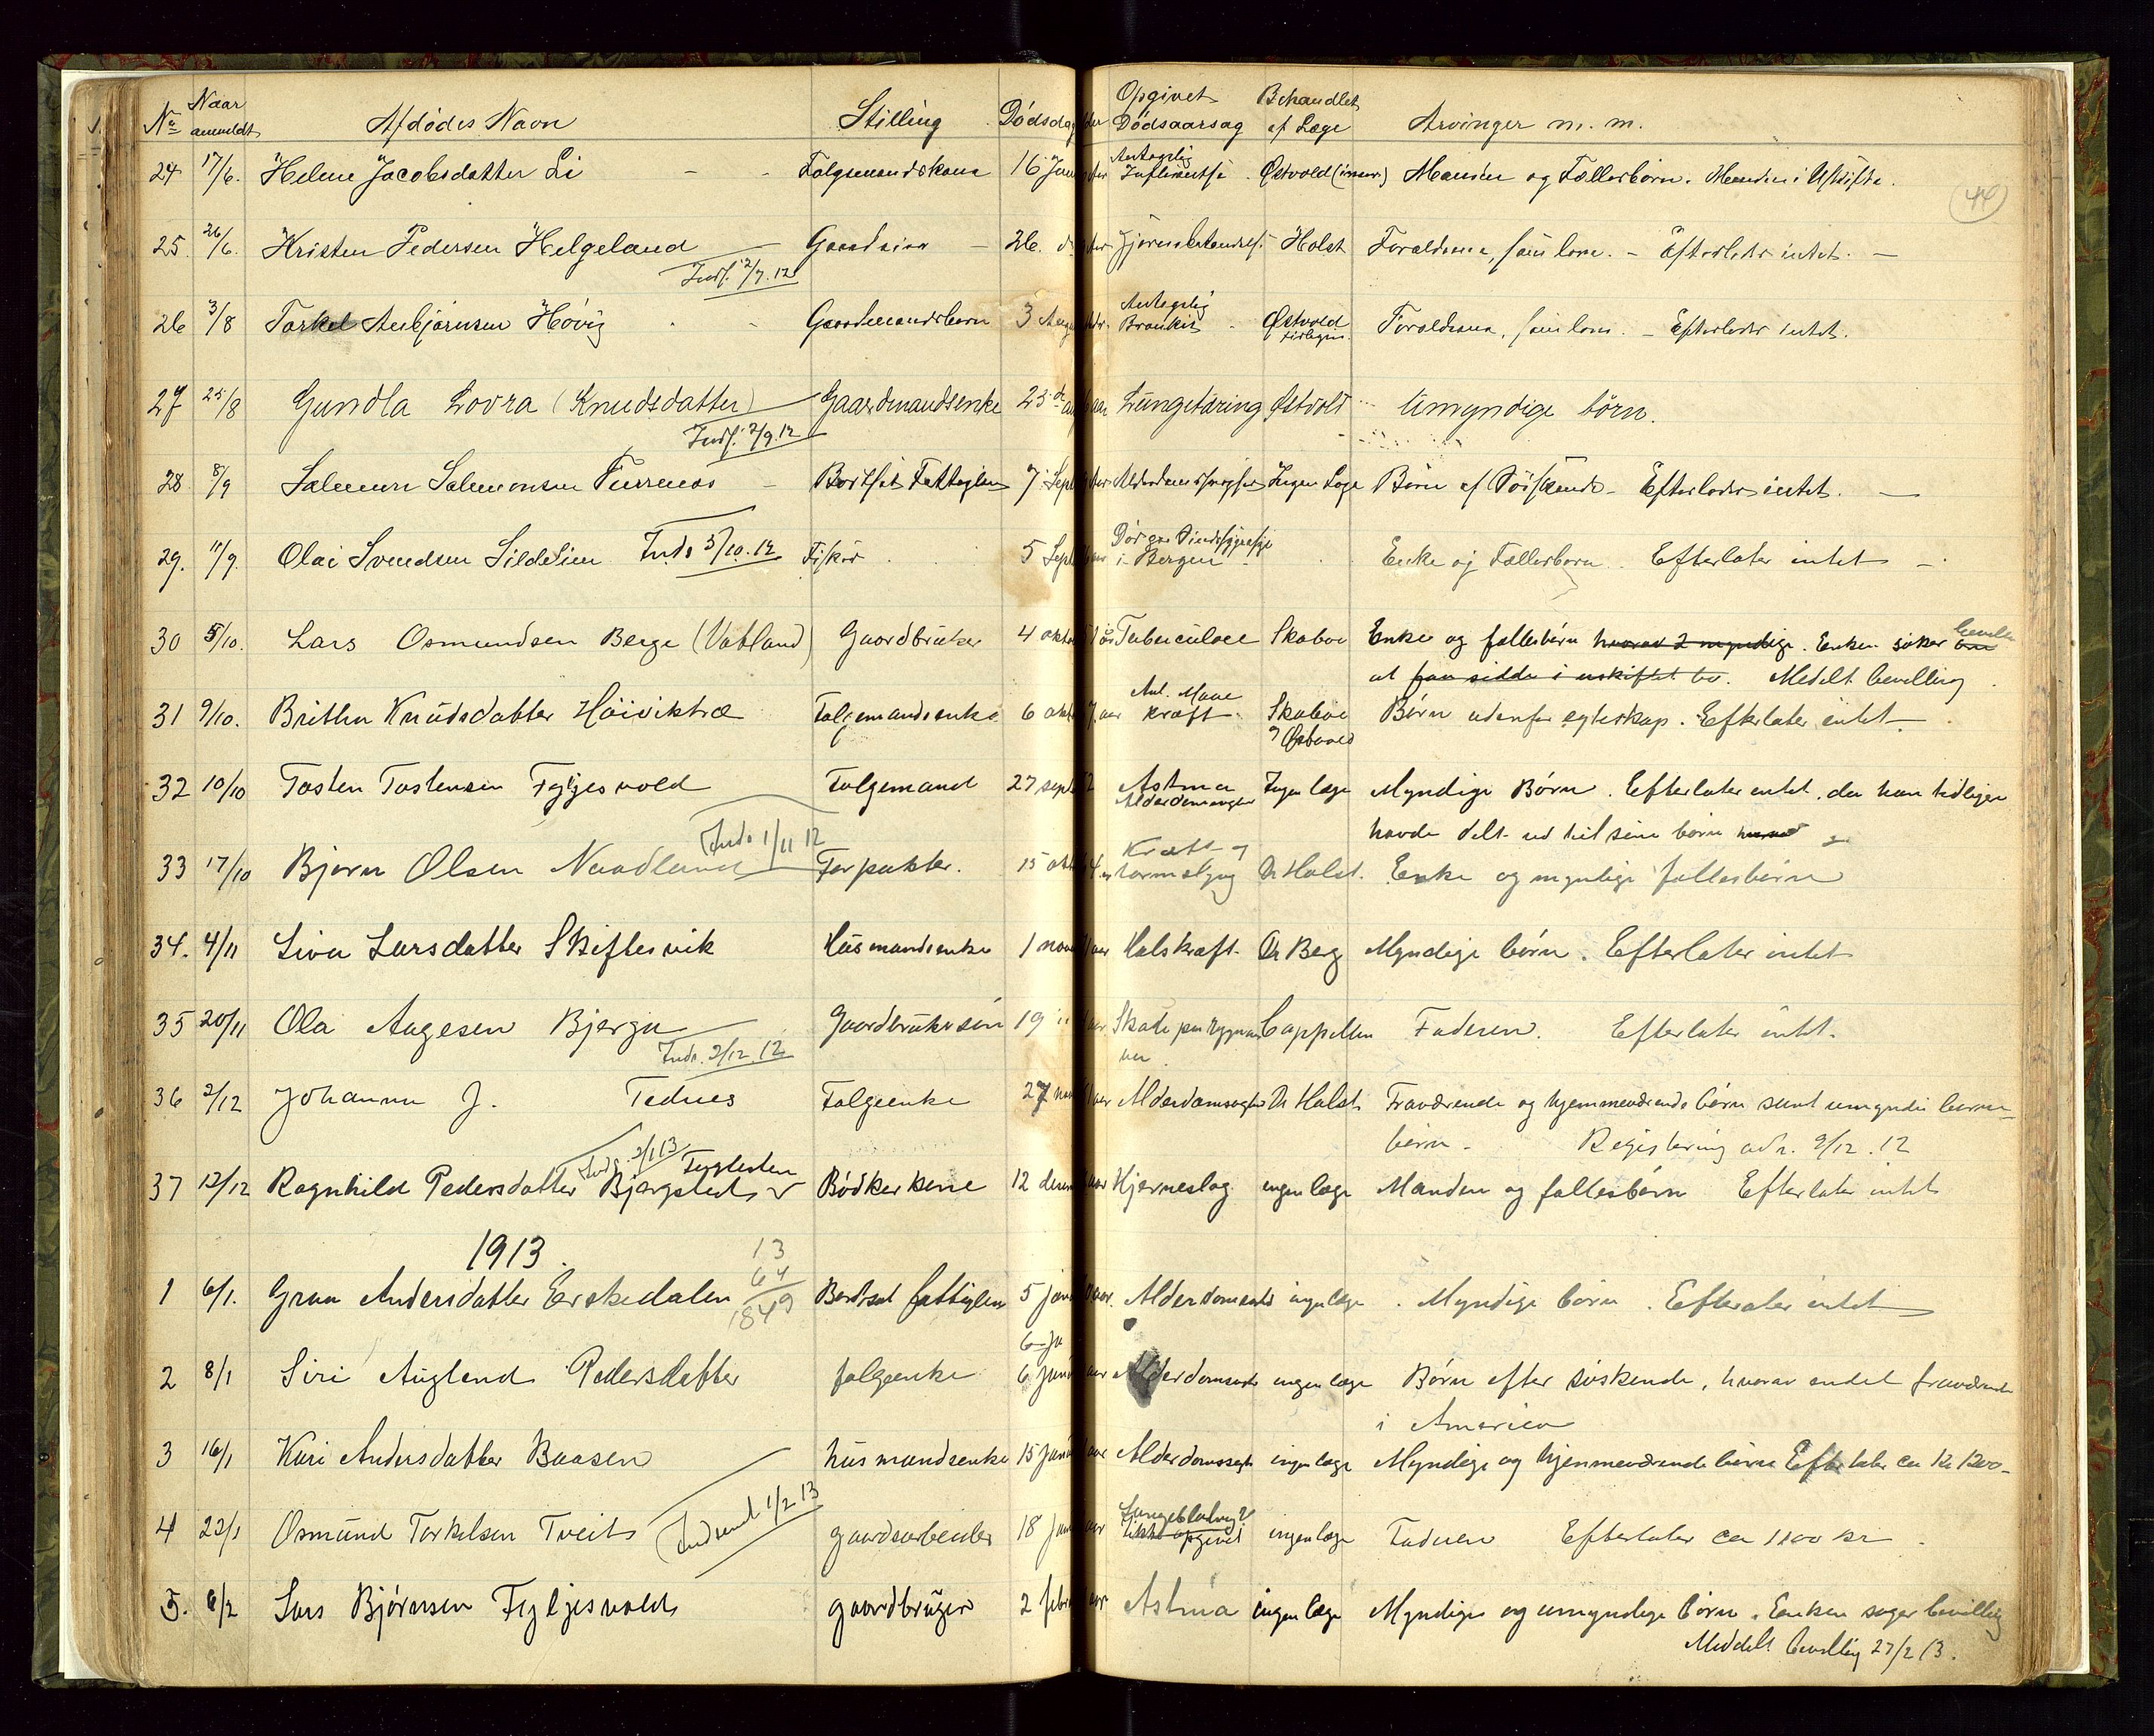 No Naar anmeldt Afdødes Navn Stilling Dødsdag Opgivet Dødsaarsag Behandlet af Læge Arvinger m. m.
44
24 17/6. Helene Jacobsdatter Li - - Folgemandskone 16 Juni Antagelig Influentse Østvold Manden og Fællesbørn. Manden i Uskifte.
25. 26/6. Kristen Pedersen Helgeland Gaardeier - 26. Holst Forældrene, som lever. - Efterlader intet. -
Indf. 2/7. 12
26 3/8 Torkel Anbjørnsen Høvig - Gaardmandsbarn 3 Aug Antagelig Bronkit - Østvold Forældrene, som lever. - Efterlader intet.
27 25/8 Gundla Lovra (Knudsdatter) Gaardmandsenke 23de Lungetæring Østvold - Umyndige børn.
Indf. 2/9. 12
28 8/9 Salemon Salemonsen - 7 Sept Ingen Læge Børn af Søskende - Efterlader intet. -
29. 11/9. Olai Svendsen Sildelien Inds 3/10. 12 Fisker 5 Sept i Bergen Enke og Fællesbørn. Efterlater intet -
30 5/10. Lars Osmundsen Berge (Vatland) Gaardbruker 4 okto Tuberculose Skaboe Enke og fællesbørn hvorav 2 myndige. Enken søker om bevilln
at faa sidde i uskiftet bo. Medelt bevilling
31 9/10. Brithe Knudsdatter Høiviktræ Folgemandsenke 6 okto Ant. Mave kræft. Skaboe og Østvold Børn udenfor egteskap. Efterlater intet.
32 10/10 Tosten Tostensen Fyljesvold Folgemand 27 sept Astma Alderdomssvaghet Ingen læge Myndige Børn. Efterlater intet. da han tidligere
havde delt ud til sine børn
Inds 1/11 12
33 17/10 Bjørn Olsen Naadland Forpakter. 15 okt Kræft og Dr Holst. Enke og myndige fællesbørn
34. 4/11 Siva Larsdatter Skiftesvik Husmandsenke 1 nov Halskræft - Dr Berg Myndige børn. Efterlater intet
35 20/11 Ola Aagesen Bjerga Gaardbrukersøn 19 " Skade paa rygraden Cappelen Faderen. Efterlater intet.
Inds. 2/12. 12
36 2/12 Johanna J. Tednes Folgeenke 27 nov Alderdomssvaghet Dr Holst Fraværende og hjemmeværende børn samt umyndie barne-
børn - Registering avh. 9/12. 12
Inds. 2/1 13
37 12/12 Ragnhild Pedersdatter Bjørgsted Bødkerkone 12 decem Hjerneslag ingen læge Manden og fællesbørn Efterlater intet
1913.
13
64
1849
1 6/1. Grua Andersdatter Erskedalen 5 janu Alderdomssvaghet ingen læge. Myndige børn. Efterlater intet
6 Ja
2 8/1 Siri Augland Pedersdatter folgeenke 6 janu Alderdomssvaghet ingen læge Børn efter søskende, hvorav endel fraværende
i America
3 16/1 Kari Andersdatter Baasen husmandsenke 15 janu Alderdomssvaghet ingen læge Myndige og hjemmeværende børn Efterlater ca kr 1200-
4 22/1 Osmund Torkelsen Tveit gaardsarbeider 18 janu Ikke opgivet ingen læge Faderen Efterlater ca 1100 kr.
Indsend 1/2 13
5. 6/2 Lars Bjørnsen Fyljesvold gaardbruger 2 febru Astma ingen læge Myndige og umyndige børn. Enken søger bevilling
Meddelt bevilling 27/2 13.